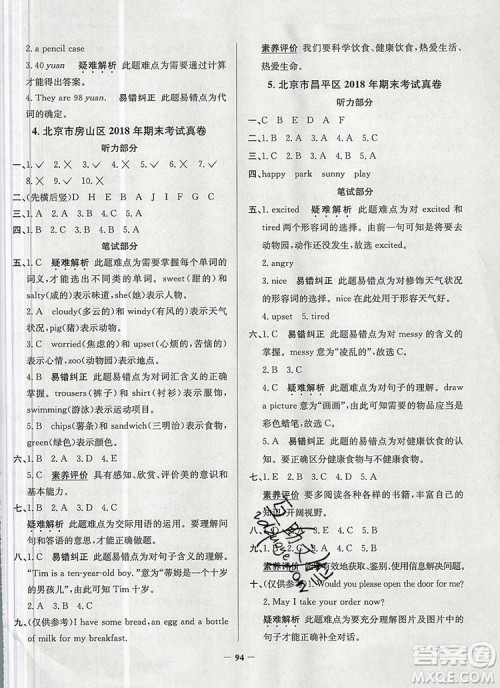 2. a pencil case
3. 40 yuan 疑难解析 此题难点为通过计算
才能得出的答案。
4. They are 98 yuan. 易错纠正 此题易错点为代
词的掌握。
4. 北京市房山区 2018 年期末考试真卷
听力部分
一、1. ✓ 2. ✕ 3. ✓ 4. ✕ 5. ✕ 6. ✓ 7. ✕
8. ✓ 9. ✕ 10. ✓
二、(先横后竖) D H E B A J I F G C
三、1. A 2. A 3. B 4. C
四、1. B 2. C 3. A 4. D
笔试部分
五、1. B 疑难解析 此题难点为需要掌握每个单词的
词义,才能选出不同类的单词。sweet(甜的)和
salty(咸的)表示味道,she(她)表示人物。
2. A cloudy(多云的)和 windy(有风的)表示天气
状况,pig(猪)表示动物。
3. C worried(焦虑的)和 upset(不安的)表示
心情,zoo(动物园)表示地点。
4. B 易错纠正 此题易错点为对词汇含义的掌
握。trousers(裤子)和 shirt(衬衫)表示衣服,
swimming(游泳)表示运动。
5. B chips(薯条)和 sandwich(三明治)表示食物,
green(绿色)表示颜色。
六、1. B 2. A 3. C
4. C 素养评价 具有感知、欣赏、评价美的意识和
基本能力。
七、1. D 2. C 3. A 4. B
疑难解析 此题难点为交际用语的运用。要理解问
句和答语的意思,才能正确做题。
八、1. C 易错纠正 此题易错点为对句子含义的掌握。
“Tim is a ten-year-old boy.”意为“蒂姆是一个十岁
的男孩儿”,由此可知 Tim 十岁。
2. A 3. B 4. A
九、(仅供参考) I have some bread, an egg and a bottle
of milk for my breakfast.
素养评价 我们要科学饮食、健康饮食,热爱生活、
热爱生命。
5. 北京市昌平区 2018 年期末考试真卷
听力部分
一、B A C B D
二、1. A 2. B 3. B 4. A
三、✓ ✕ ✓ ✕ ✓
四、happy park sunny sunglasses
笔试部分
五、1. excited 疑难解析 此题难点为对 excited 和
tired 两个形容词的掌握。由前一句可知要去
动物园,心情应该是兴奋的。
2. angry
3. nice 易错纠正 此题易错点为对修饰天气状况
的形容词的掌握。nice 表示“好的”。
4. upset 5. tired
六、1. C 易错纠正 此题易错点为对 messy 含义的
掌握。messy 意为“凌乱的”,故选 C。
2. A 3. B
4. B 疑难解析 此题难点为对句子的理解。draw
a picture 意为“画画”,由此可知需要的物品应当是
彩色蜡笔,故选 B。
5. A 易错纠正 此题易错点为对健康饮食的认
知。要正确区分健康食物与不健康食物。
七、1. E 2. F 3. B 4. C 5. A
素养评价 要多阅读各种各样的书籍,扩展知识,
开阔视野。
八、1. B 2. D 3. C 4. A
九、1. C 2. B 3. A
素养评价 能有效地获取、鉴别、使用信息解决问题。
十、(仅供参考) 1. Would you please open the door for me?
2. May I take your order now?
疑难解析 此题难点为要充分理解图片及图片中的
句子才能正确补全对话。
94